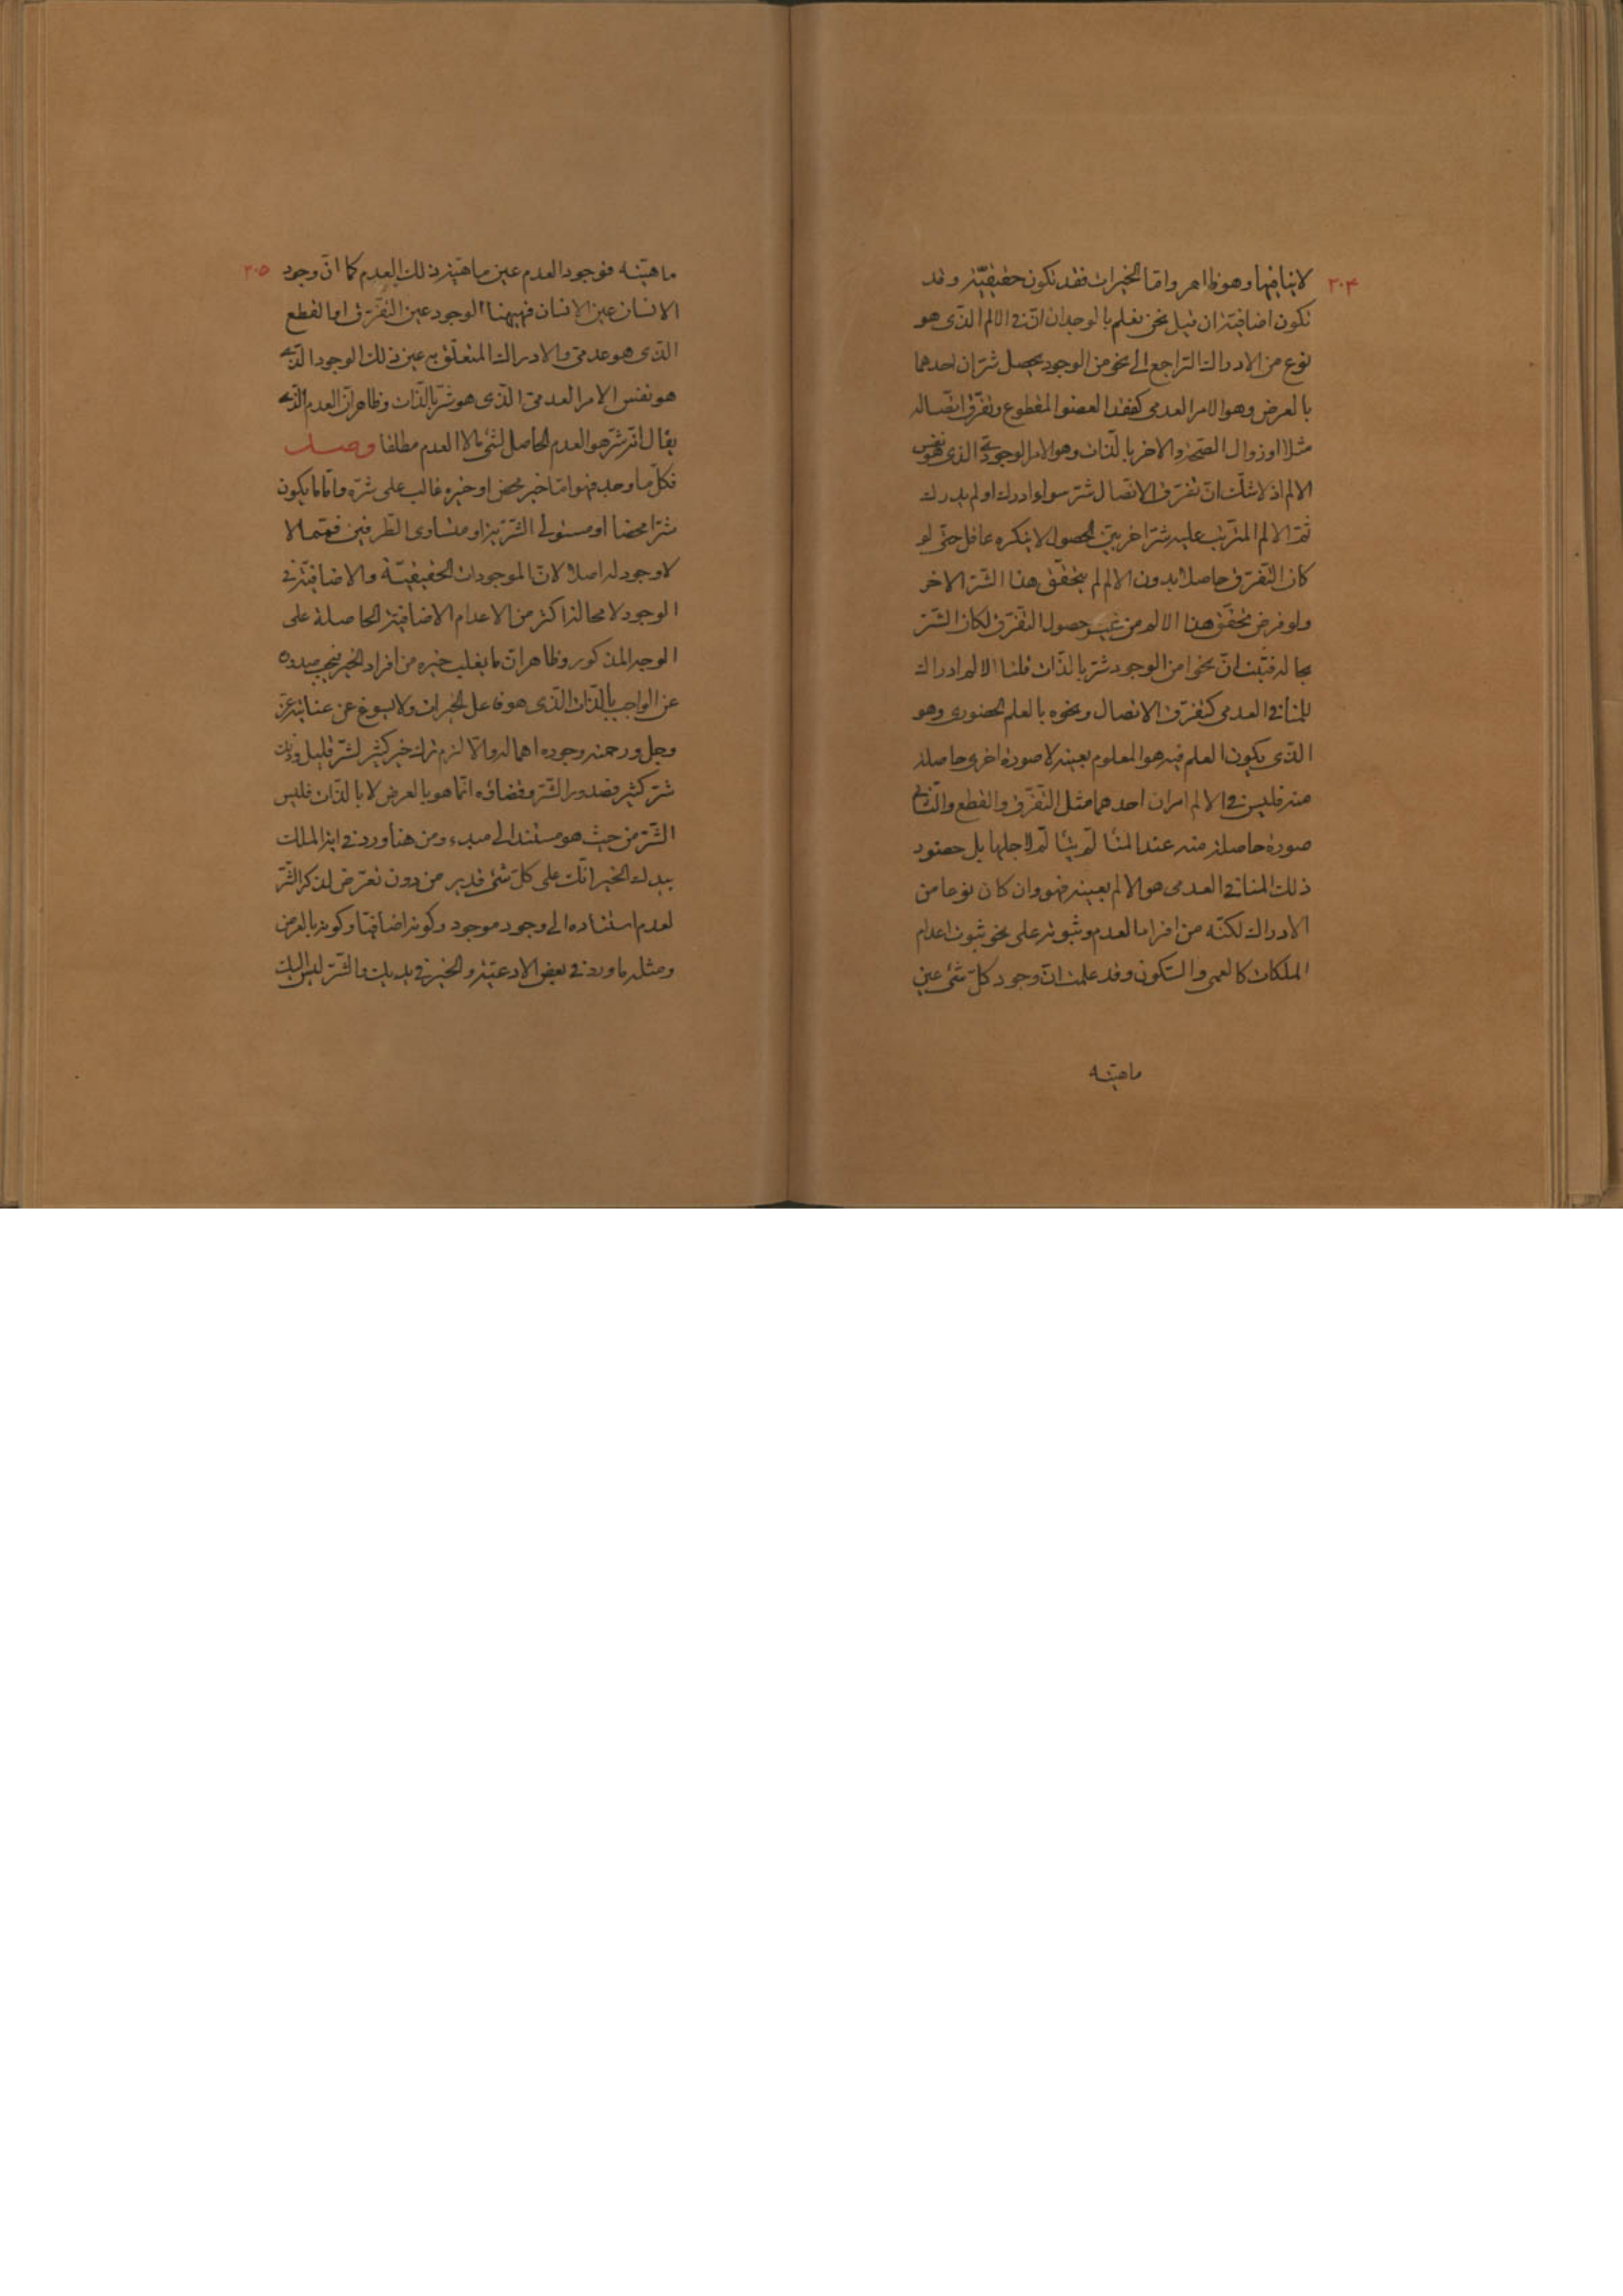 ٢٠٤
لا ينافيها وهو ظاهر واما الخيرات فقد تكون حقيقيّة وقد
تكون اضافية ان قيل نحن نعلم بالوجدان انّ في الالم الذى هو
نوع من الادراك الراجع الى نحو من الوجود يحصل شرّان احدهما
بالعرض وهو الامر العدمى كفقد العضو المقطوع وتفرّق اتصاله
مثلا او زوال الصحة والاخر بالذات وهو الامر الوجودي الذى هو نفس
الالم اذ لا شك انّ تفرّق الاتصال شرّ سواء ادرك او لم يدرك
ثمّ الالم المترتب عليه شرّ اخر بيّن الحصول لا ينكره عاقل حتى لو
كان التفرّق حاصلا بدون الالم لم يتحقّق هذا الشرّ الاخر
ولو فرض تحقق هذا الالم من غير حصول التفرّق لكان الشرّ
بحاله فثبت انّ نحوا من الوجود شرّ بالذات قلنا الالم ادراك
للمنافي العدمى كتفرّق الاتصال ونحوه بالعلم الحضورى وهو
الذى يكون العلم فيه هو المعلوم بعينه لا صورة اخرى حاصلة
منه فليس في الالم امران احدهما مثل التفرّق والقطع والثاني
صورة حاصلة منه عند المتألّم يتألّم لاجلها بل حضور
ذلك المنافي العدمى هو الالم بعينه فهو وان كان نوعا من
الادراك لكنّه من افراد العدم وثبوته على نحو ثبوت اعدام
الملكات كالعمى والسّكون وقد علمت انّ وجود كلّ شئ عين
ماهيّته
٢٠٥
ماهيّته فوجود العدم عين ماهيّة ذلك العدم كما انّ وجود
الانسان عين الانسان فههنا الوجود عين التفرّق او القطع
الذى هو عدمىّ والادراك المتعلّق به عين ذلك الوجود الذى
هو نفس الامر العدمىّ الذى هو شرّ بالذات وظاهر انّ العدم الذى
يقال انّه شرّ هو العدم الحاصل لشئ ما لا العدم مطلقا وصل
فكلّ ما وجد فهو امّا خير محض او خيره غالب على شرّه وامّا ما يكون
شرّا محضا او مستولى الشرّية او متساوى الطرفين فممّا لا
لا وجود له اصلا لانّ الموجودات الحقيقيّة والاضافيّة في
الوجود لا محالة اكثر من الاعدام الاضافيّة الحاصلة على
الوجه المذكور وظاهر انّ ما يغلب خيره من افراد الخير فيجب صدوره
عن الواجب بالذات الذى هو فاعل الخيرات ولا يسوغ عن عنايته عزّ
وجل ورحمته وجوده اهماله والّا لزم ترك خير كثير لشرّ قليل وذلك
شرّ كثير فصدور الشرّ وقضاؤه انّما هو بالعرض لا بالذات فليس
الشرّ من حيث هو مستندا الى مبدء ومن هنا ورد في اية الملك
بيدك الخير انّك على كلّ شئ قدير من دون تعرّض لذكر الشرّ
لعدم استناده الى وجود موجود وكونه اضافيّا وكونه بالعرض
ومثله ما ورد في بعض الادعية والخير في يديك والشرّ ليس اليك